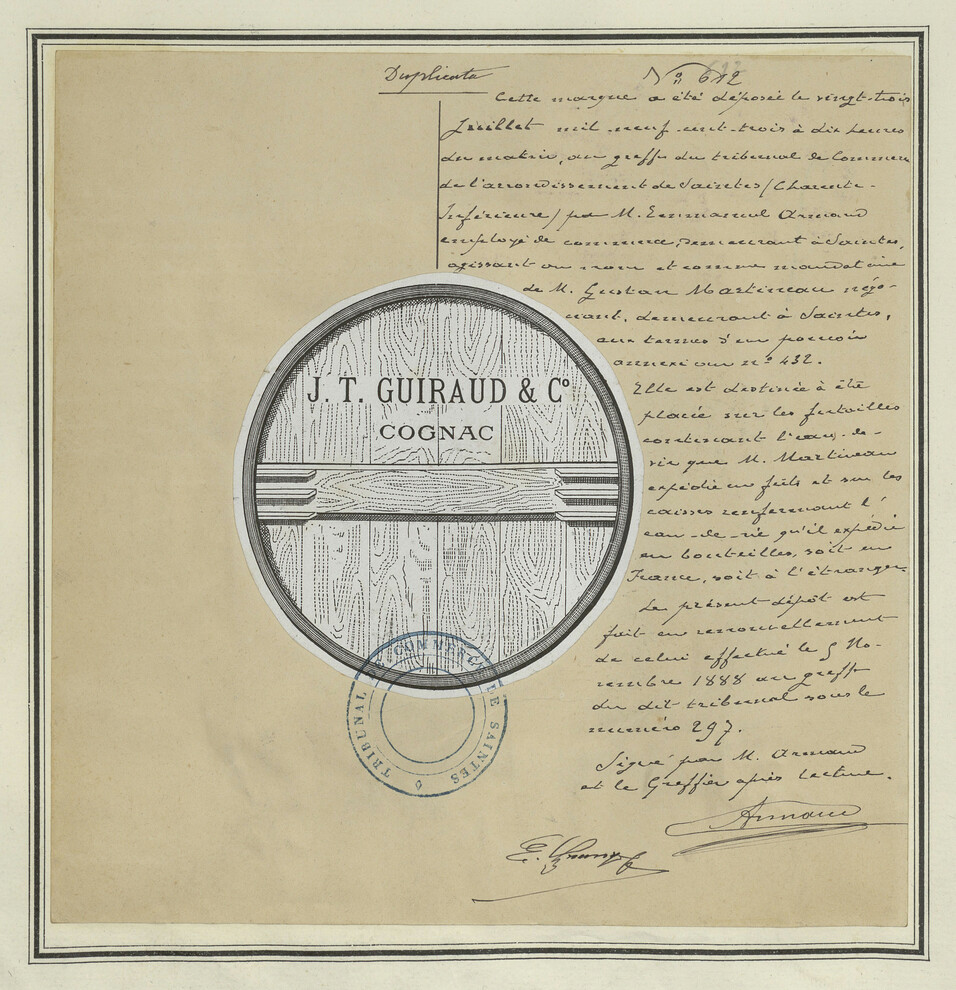 Duplicata
N° 612
Cette marque a été déposée le vingt-trois
Juillet mil-neuf-cent-trois à dix heures
du matin, au greffe du tribunal de Commerce
de l'arrondissement de Saintes (Charente-
Inférieure) par M. Emmanuel Armand
employé de commerce, demeurant à Saintes,
agissant au nom et comme mandataire
de M. Gustave Martineau négo-
ciant, demeurant à Saintes,
aux termes d'un pouvoir
annexé au n° 432.
Elle est destinée à être
placée sur les futailles
contenant l'eau-de-
vie que M. Martineau
expédie en fûts et sur les
caisses renfermant l'
eau-de-vie qu'il expédie
en bouteilles, soit en
France, soit à l'étranger.
Le présent dépôt est
fait en renouvellement
de celui effectué le 5 No-
vembre 1888 au greffe
du dit tribunal sous le
numéro 297.
Signé par M. Armand
et le Greffier après lecture.
Armand
E.
J. T. GUIRAUD & C°
COGNAC
TRIBUNAL DE COMMERCE DE SAINTES